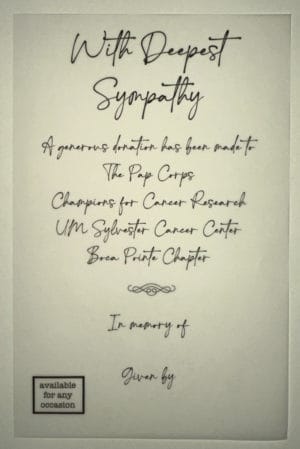 With Deepest
Sympathy
A generous donation has been made to
The Pap Corps
Champions for Cancer Research
UM Sylvester Cancer Center
Boca Pointe Chapter
In memory of
Given by
available
for any
occasion